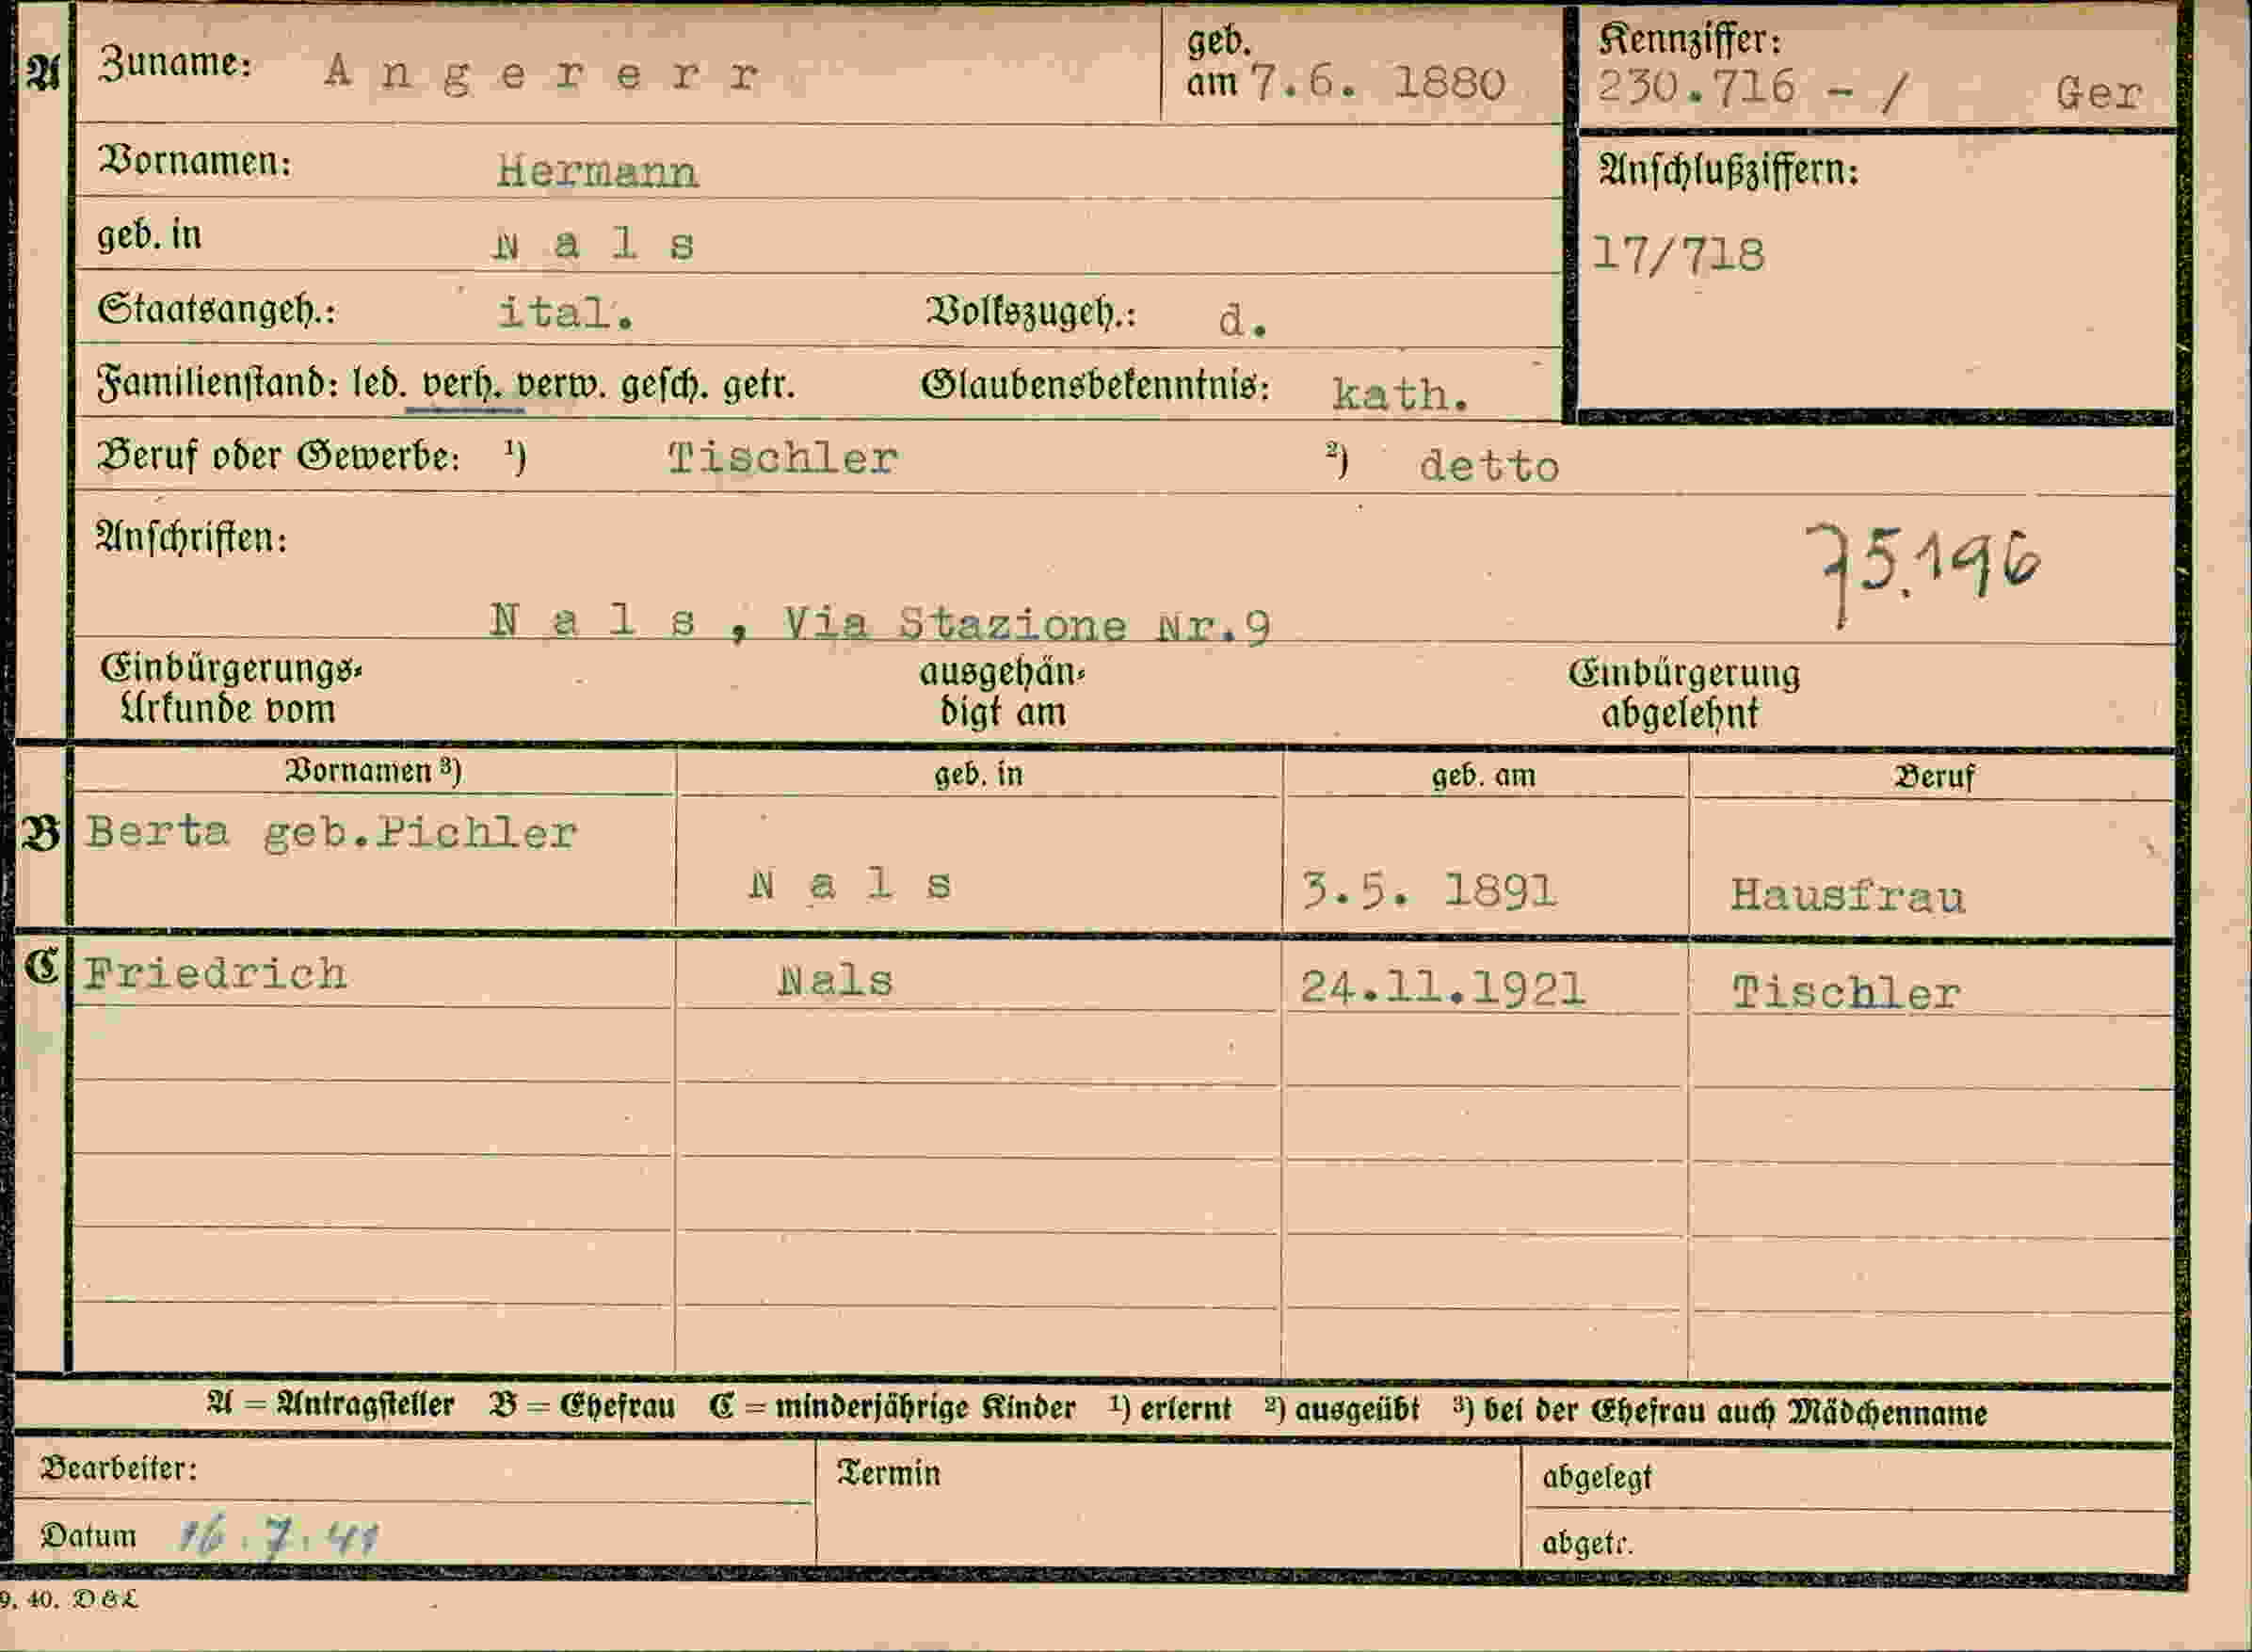 A Zuname: Angererr geb. am 7.6. 1880 Kennziffer: 230.716 - / Ger
Vornamen: Hermann Anschlußziffern:
geb. in Nals 17/718
Staatsangeh.: ital. Volkszugeh.: d.
Familienstand: led. verh. verw. gesch. getr. Glaubensbekenntnis: kath.
Beruf oder Gewerbe: ¹) Tischler ²) detto
Anschriften: 75.196
Nals, Via Stazione Nr.9
Einbürgerungs- ausgehän- Einbürgerung
Urkunde vom digt am abgelehnt
Vornamen ³) geb. in geb. am Beruf
B Berta geb.Pichler
Nals 3.5. 1891 Hausfrau
C Friedrich Nals 24.11.1921 Tischler
A = Antragsteller B = Ehefrau C = minderjährige Kinder ¹) erlernt ²) ausgeübt ³) bei der Ehefrau auch Mädchenname
Bearbeiter: Termin abgelegt
Datum 16.7.41 abgetr.
9. 40. D & L